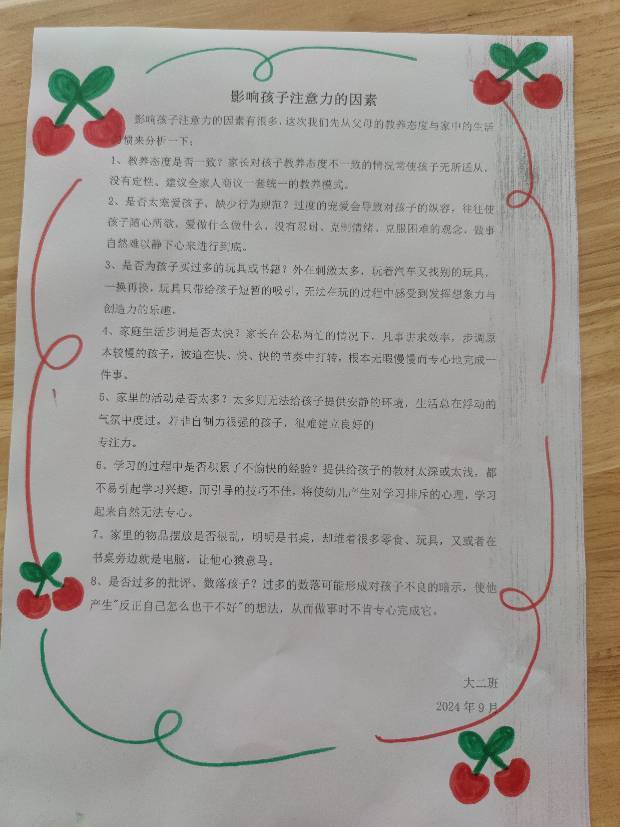 影响孩子注意力的因素
影响孩子注意力的因素有很多，这次我们先从父母的教养态度与家中的生活
习惯来分析一下：
1、教养态度是否一致？家长对孩子教养态度不一致的情况常使孩子无所适从，
没有定性、建议全家人商议一套统一的教养模式。
2、是否太宠爱孩子，缺少行为规范？过度的宠爱会导致对孩子的纵容，往往使
孩子随心所欲，爱做什么做什么，没有忍耐、克制情绪、克服困难的观念，做事
自然难以静下心来进行到底。
3、是否为孩子买过多的玩具或书籍？外在刺激太多，玩着汽车又找别的玩具，
一换再换，玩具只带给孩子短暂的吸引，无法在玩的过程中感受到发挥想象力与
创造力的乐趣。
4、家庭生活步调是否太快？家长在公私两忙的情况下，凡事讲求效率，步调原
本较慢的孩子，被迫在快、快、快的节奏中打转，根本无暇慢慢而专心地完成一
件事。
5、家里的活动是否太多？太多则无法给孩子提供安静的环境，生活总在浮动的
气氛中度过。若非自制力很强的孩子，很难建立良好的
专注力。
6、学习的过程中是否积累了不愉快的经验？提供给孩子的教材太深或太浅，都
不易引起学习兴趣，而引导的技巧不佳，将使幼儿产生对学习排斥的心理，学习
起来自然无法专心。
7、家里的物品摆放是否很乱，明明是书桌，却堆着很多零食、玩具，又或者在
书桌旁边就是电脑，让他心猿意马。
8、是否过多的批评、数落孩子？过多的数落可能形成对孩子不良的暗示，使他
产生"反正自己怎么也干不好"的想法，从而做事时不肯专心完成它。
大二班
2024年9月